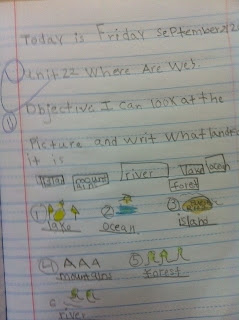 Today is Friday September
Unit 22 Where Are We?.
Objective I can look at the
Picture and writ what
it is
mountain river forest ocean
① lake ② ocean ③ island
④ mountains ⑤ forest
6 river